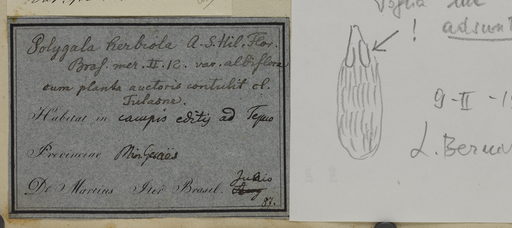 Polygala herbiola A. S. Hil. Flor.
Bras. mer. II. 12. var. albiflora
cum planta auctoris contulit cl.
Tulasne.
Habitat in campis editis ad Tejuco
Provinciae Min. Geraës
De Martius Iter Brasil. Junio
!
adsunt
9-II-19
L. Bernar